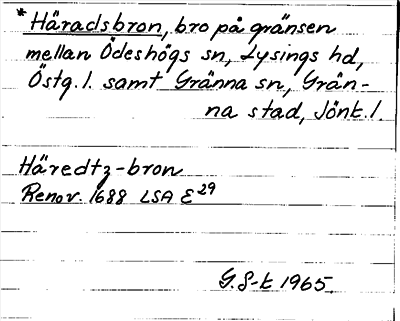 * Häradsbron, bro på gränsen
mellan Ödeshögs sn, Lysings hd,
Östg. l. samt Gränna sn, Grän-
na stad, Jönk. l.
Häredtz-bron
Renov. 1688 LSA E 29
G. S-t 1965.